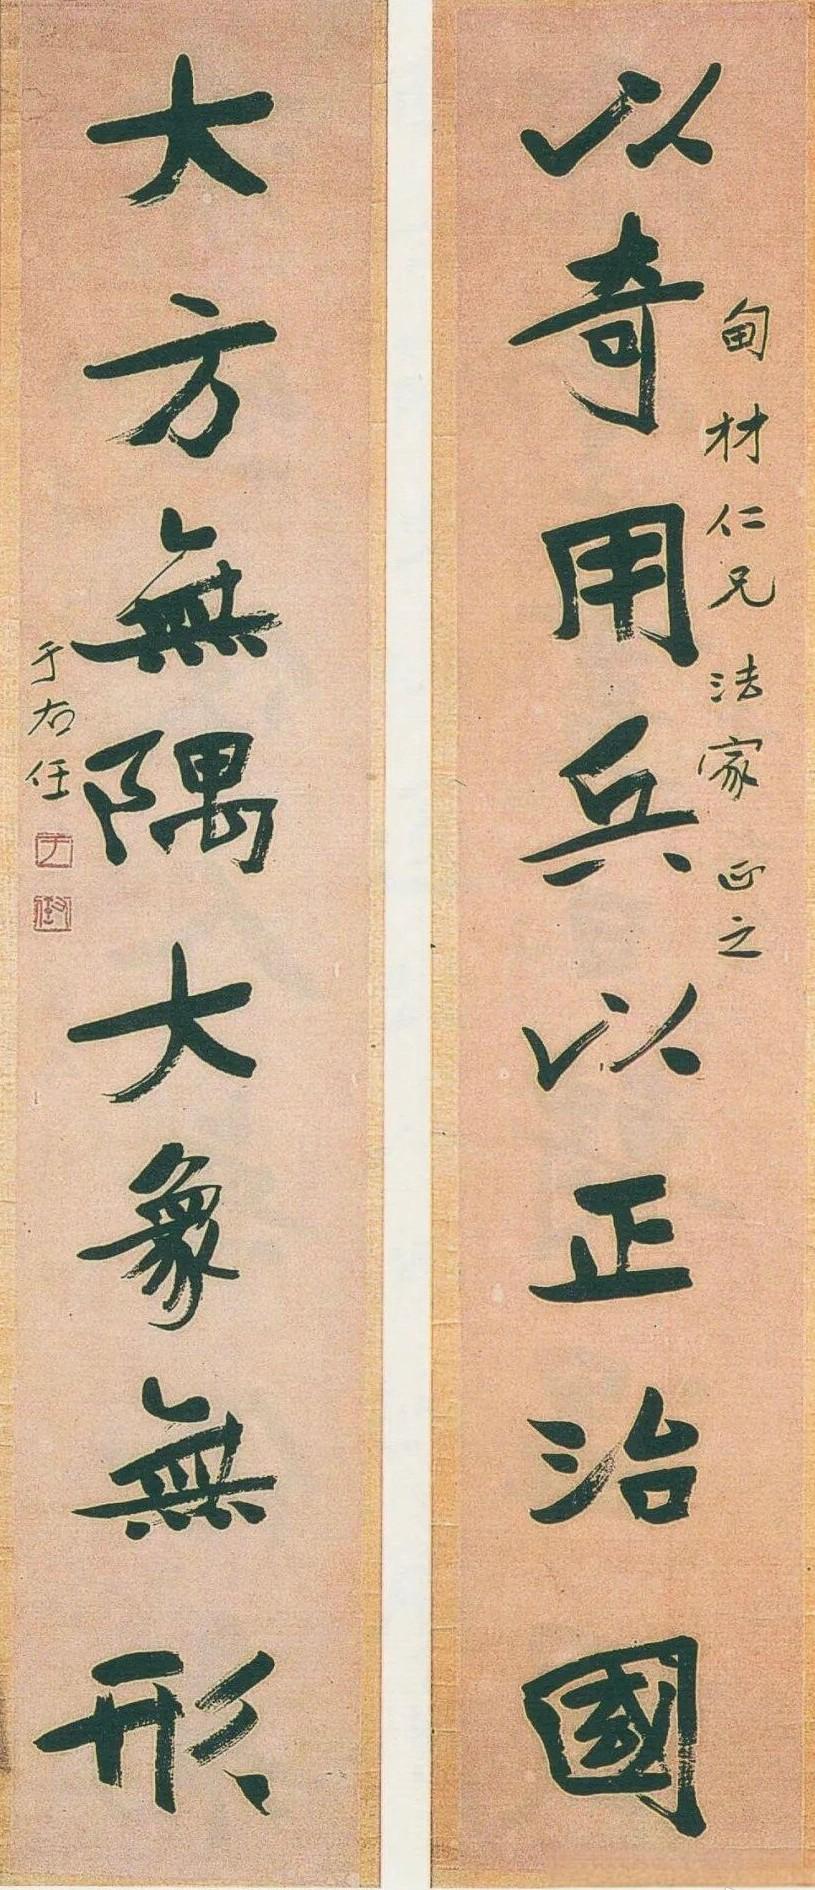 以奇用兵以正治國
甸材仁兄法家正之
大方無隅大象無形
于右任